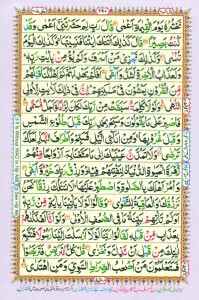 نَحْشُرُهٗ يَوْمَ الْقِيٰمَةِ اَعْمٰى قَالَ رَبِّ لِمَ حَشَرْتَنِيْۤ اَعْمٰى وَقَدْ
كُنْتُ بَصِيْرًا قَالَ كَذٰلِكَ اَتَتْكَ اٰيٰتُنَا فَنَسِيْتَهَا وَكَذٰلِكَ الْيَوْمَ
تُنْسٰى وَكَذٰلِكَ نَجْزِيْ مَنْ اَسْرَفَ وَلَمْ يُؤْمِنْ بِاٰيٰتِ رَبِّهٖ
وَلَعَذَابُ الْاٰخِرَةِ اَشَدُّ وَاَبْقٰى اَفَلَمْ يَهْدِ لَهُمْ كَمْ اَهْلَكْنَا قَبْلَهُمْ
مِّنَ الْقُرُوْنِ يَمْشُوْنَ فِيْ مَسٰكِنِهِمْ اِنَّ فِيْ ذٰلِكَ لَاٰيٰتٍ لِّاُولِي
النُّهٰى وَلَوْلَا كَلِمَةٌ سَبَقَتْ مِنْ رَّبِّكَ لَكَانَ لِزَامًا وَّاَجَلٌ مُّسَمًّى
فَاصْبِرْ عَلٰى مَا يَقُوْلُوْنَ وَسَبِّحْ بِحَمْدِ رَبِّكَ قَبْلَ طُلُوْعِ الشَّمْسِ
وَقَبْلَ غُرُوْبِهَا وَمِنْ اٰنَآئِ الَّيْلِ فَسَبِّحْ وَاَطْرَافَ النَّهَارِ لَعَلَّكَ
تَرْضٰى وَلَا تَمُدَّنَّ عَيْنَيْكَ اِلٰى مَا مَتَّعْنَا بِهٖۤ اَزْوَاجًا مِّنْهُمْ
زَهْرَةَ الْحَيٰوةِ الدُّنْيَا لِنَفْتِنَهُمْ فِيْهِ وَرِزْقُ رَبِّكَ خَيْرٌ وَّاَبْقٰى
وَاْمُرْ اَهْلَكَ بِالصَّلٰوةِ وَاصْطَبِرْ عَلَيْهَا لَا نَسْـَٔلُكَ رِزْقًا نَحْنُ
نَرْزُقُكَ وَالْعَاقِبَةُ لِلتَّقْوٰى وَقَالُوْا لَوْلَا يَاْتِيْنَا بِاٰيَةٍ مِّنْ رَّبِّهٖ
اَوَلَمْ تَاْتِهِمْ بَيِّنَةُ مَا فِي الصُّحُفِ الْاُوْلٰى وَلَوْ اَنَّاۤ اَهْلَكْنٰهُمْ
بِعَذَابٍ مِّنْ قَبْلِهٖ لَقَالُوْا رَبَّنَا لَوْلَاۤ اَرْسَلْتَ اِلَيْنَا رَسُوْلًا فَنَتَّبِعَ
اٰيٰتِكَ مِنْ قَبْلِ اَنْ نَّذِلَّ وَنَخْزٰى قُلْ كُلٌّ مُّتَرَبِّصٌ فَتَرَبَّصُوْا
فَسَتَعْلَمُوْنَ مَنْ اَصْحٰبُ الصِّرَاطِ السَّوِيِّ وَمَنِ اهْتَدٰى